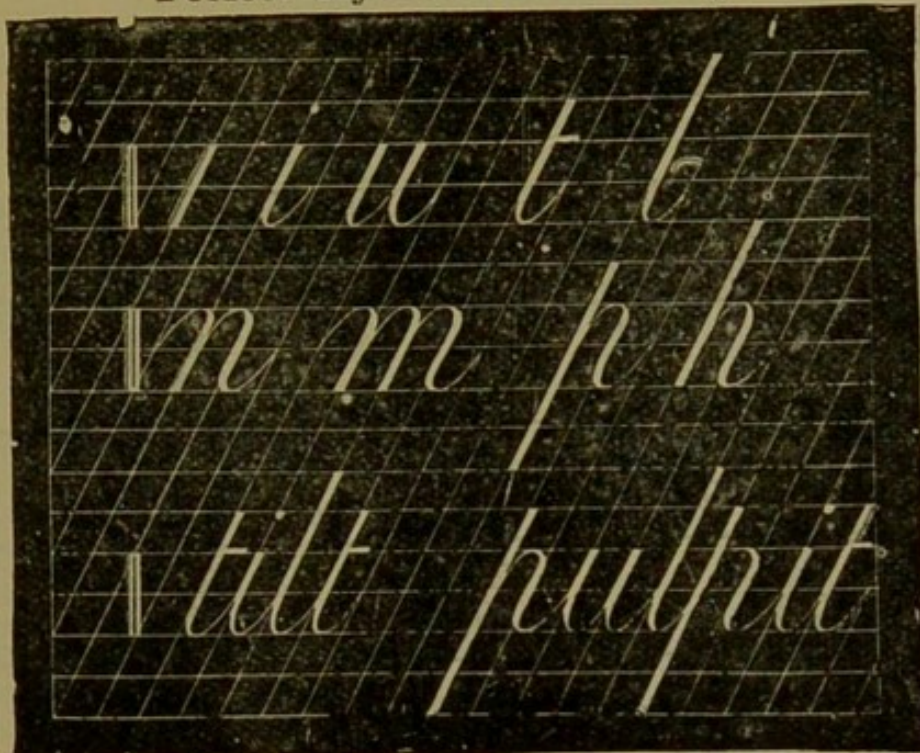 i u t b
n m p h
tilt pulpit